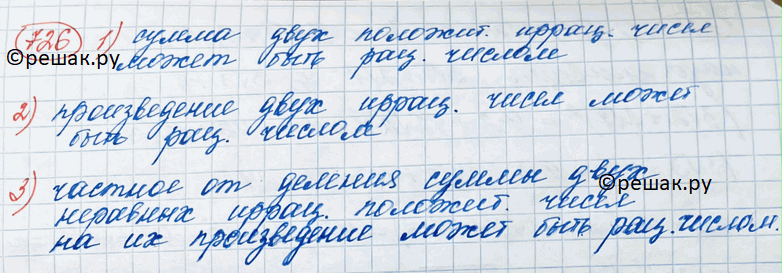 726 1) сумма двух положит. иррац. чисел
©решак.ру может быть рац. числом ©решак.ру
2) произведение двух иррац. чисел может
быть рац. числом
3) частное от деления суммы двух
неравных иррац. положит. чисел ©решак.ру
на их произведение может быть рац. числом.